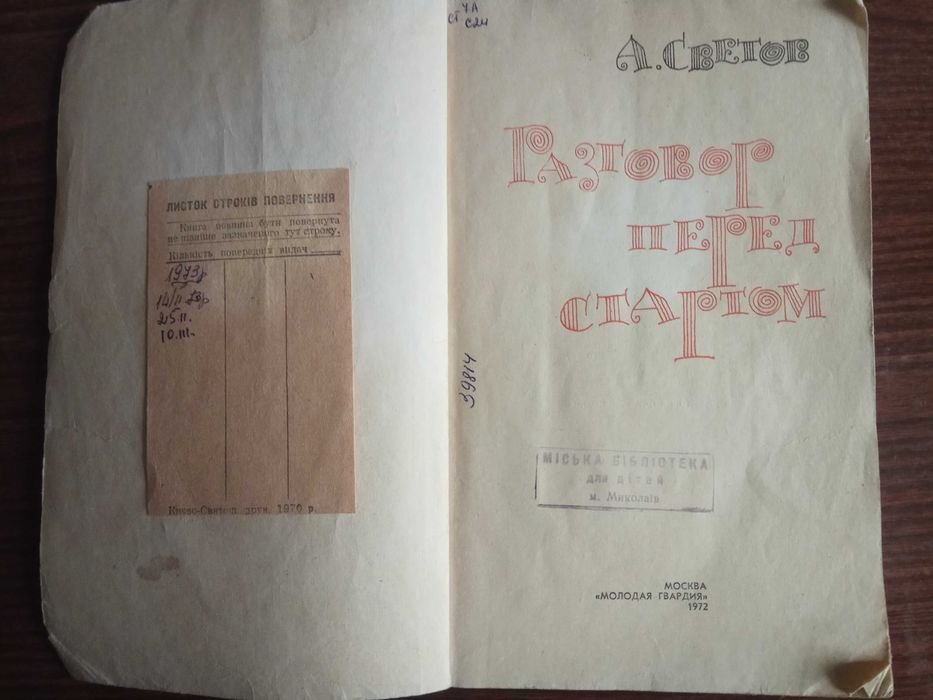 ЛИСТОК СТРОКІВ ПОВЕРНЕННЯ
Книга повинна бути повернута
не пізніше зазначеного тут строку.
Кількість попередніх видач
1973р
14/II 73р
25.II.
10.III.
Києво-Святош. друк. 1970 р.
СТ 4А
С24
А. СВЕТОВ
РАЗГОВОР
ПЕРЕД
СТАРТОМ
39814
МІСЬКА БІБЛІОТЕКА
для дітей
м. Миколаїв
МОСКВА
«МОЛОДАЯ ГВАРДИЯ»
1972